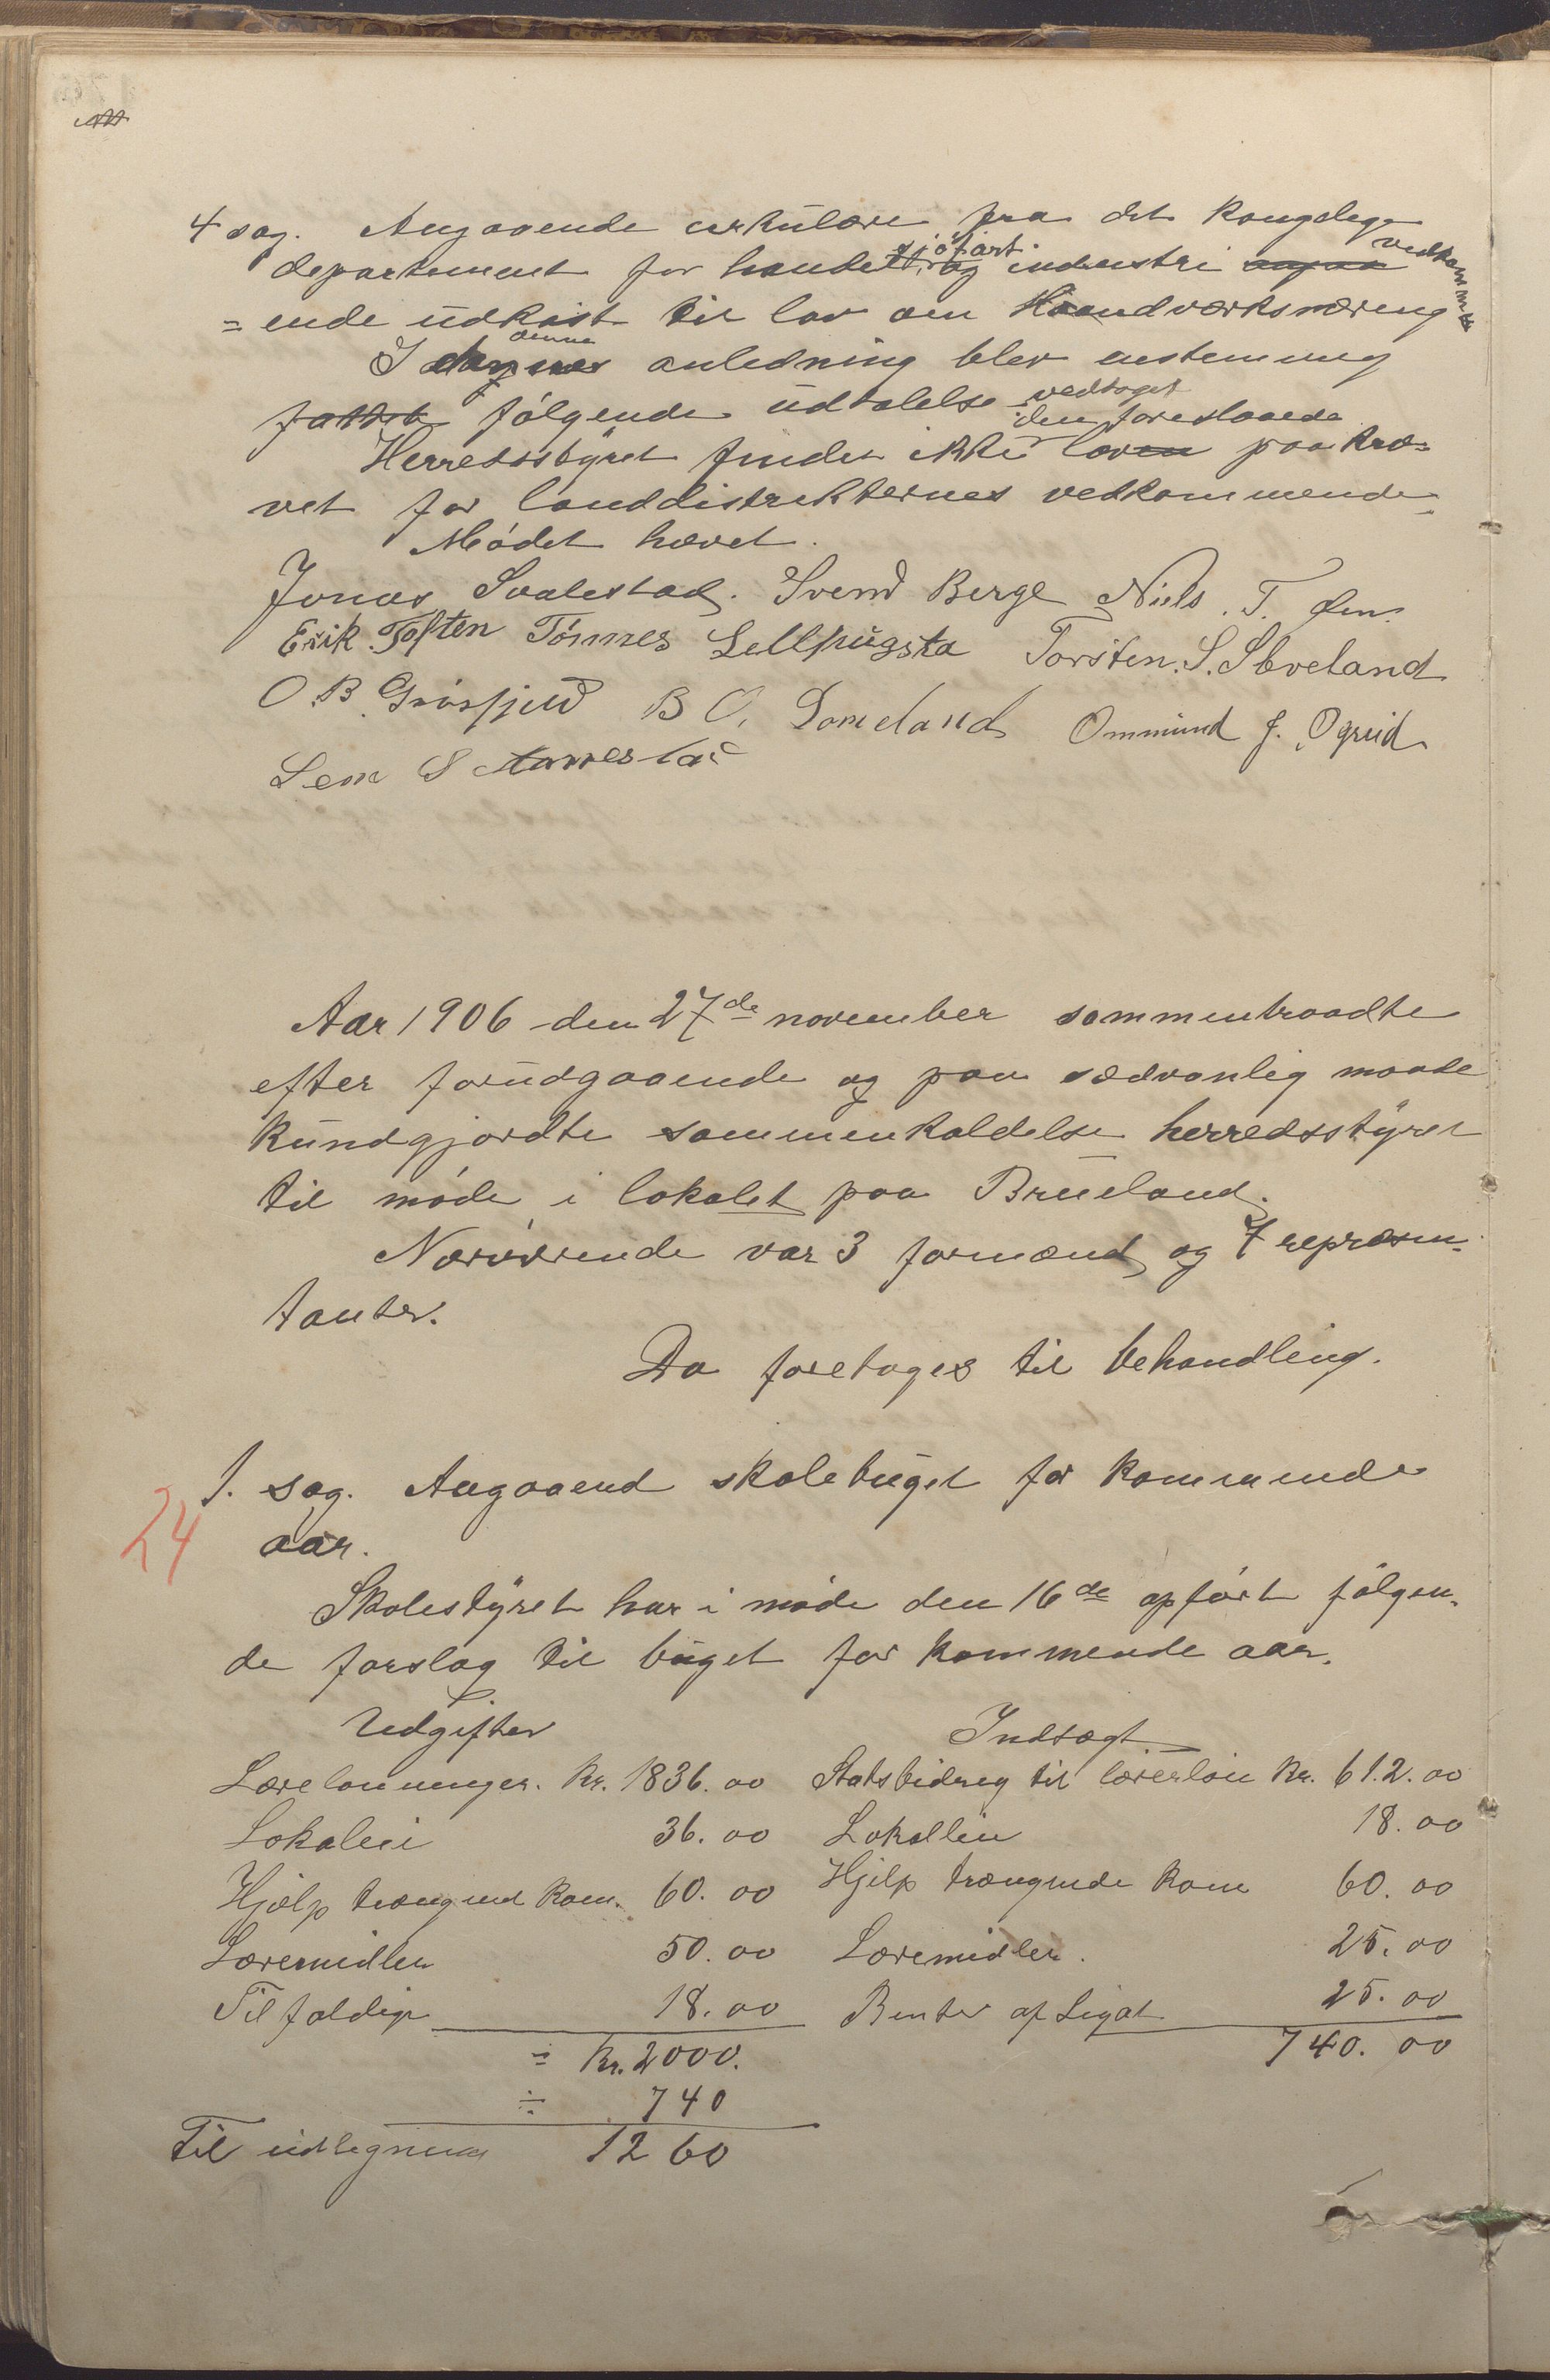 4 sag. Angaaende cirkulære fra det kongelige
departement for handel, sjöfart og industri vedkomm
= ende udkast til lov om Haandværksnæring
I denne anledning blev enstemmig
fattet følgende udtalelse vedtaget
Herredsstyret finder ikke den foreslaaede lov paakræ-
vet for landdistrikternes vedkommende.
Mødet hævet.
Jonas Svalestad. Svend Berge Niels. T.
Erik. Toften Tönnes Torsten. S. Sleveland
O. B. Grösfjeld B O. Domeland Ommund J. Ogreid
S
Aar 1906 den 27de november sammentraadte
efter forudgaaende og paa sædvanlig maade
kundgjordte sammenkaldelse herredsstyret
til möde i lokalet paa Brueland.
Nærværende var 3 formænd og 7 repræsen-
tanter.
Da foretoges til behandling.
1. sag. Angaaend skolebuget for kommende
24 aar.
Skolestyret har i möde den 16de opført følgen-
de forslag til buget for kommende aar.
Udgifter Indtægt
Lærelønninger. Kr. 1836.00 Statsbidrag til lærerløn Kr. 612.00
Lokaleie 36.00 Lokalleie 18.00
Hjælp trængend Kom. 60.00 Hjelp trængende Kom 60.00
Læremidler 50.00 Læremidler. 25.00
Tilfældige 18.00 Renter af Legat 25.00
= Kr. 2000. 740.00
÷ 740
Til udligning 1260